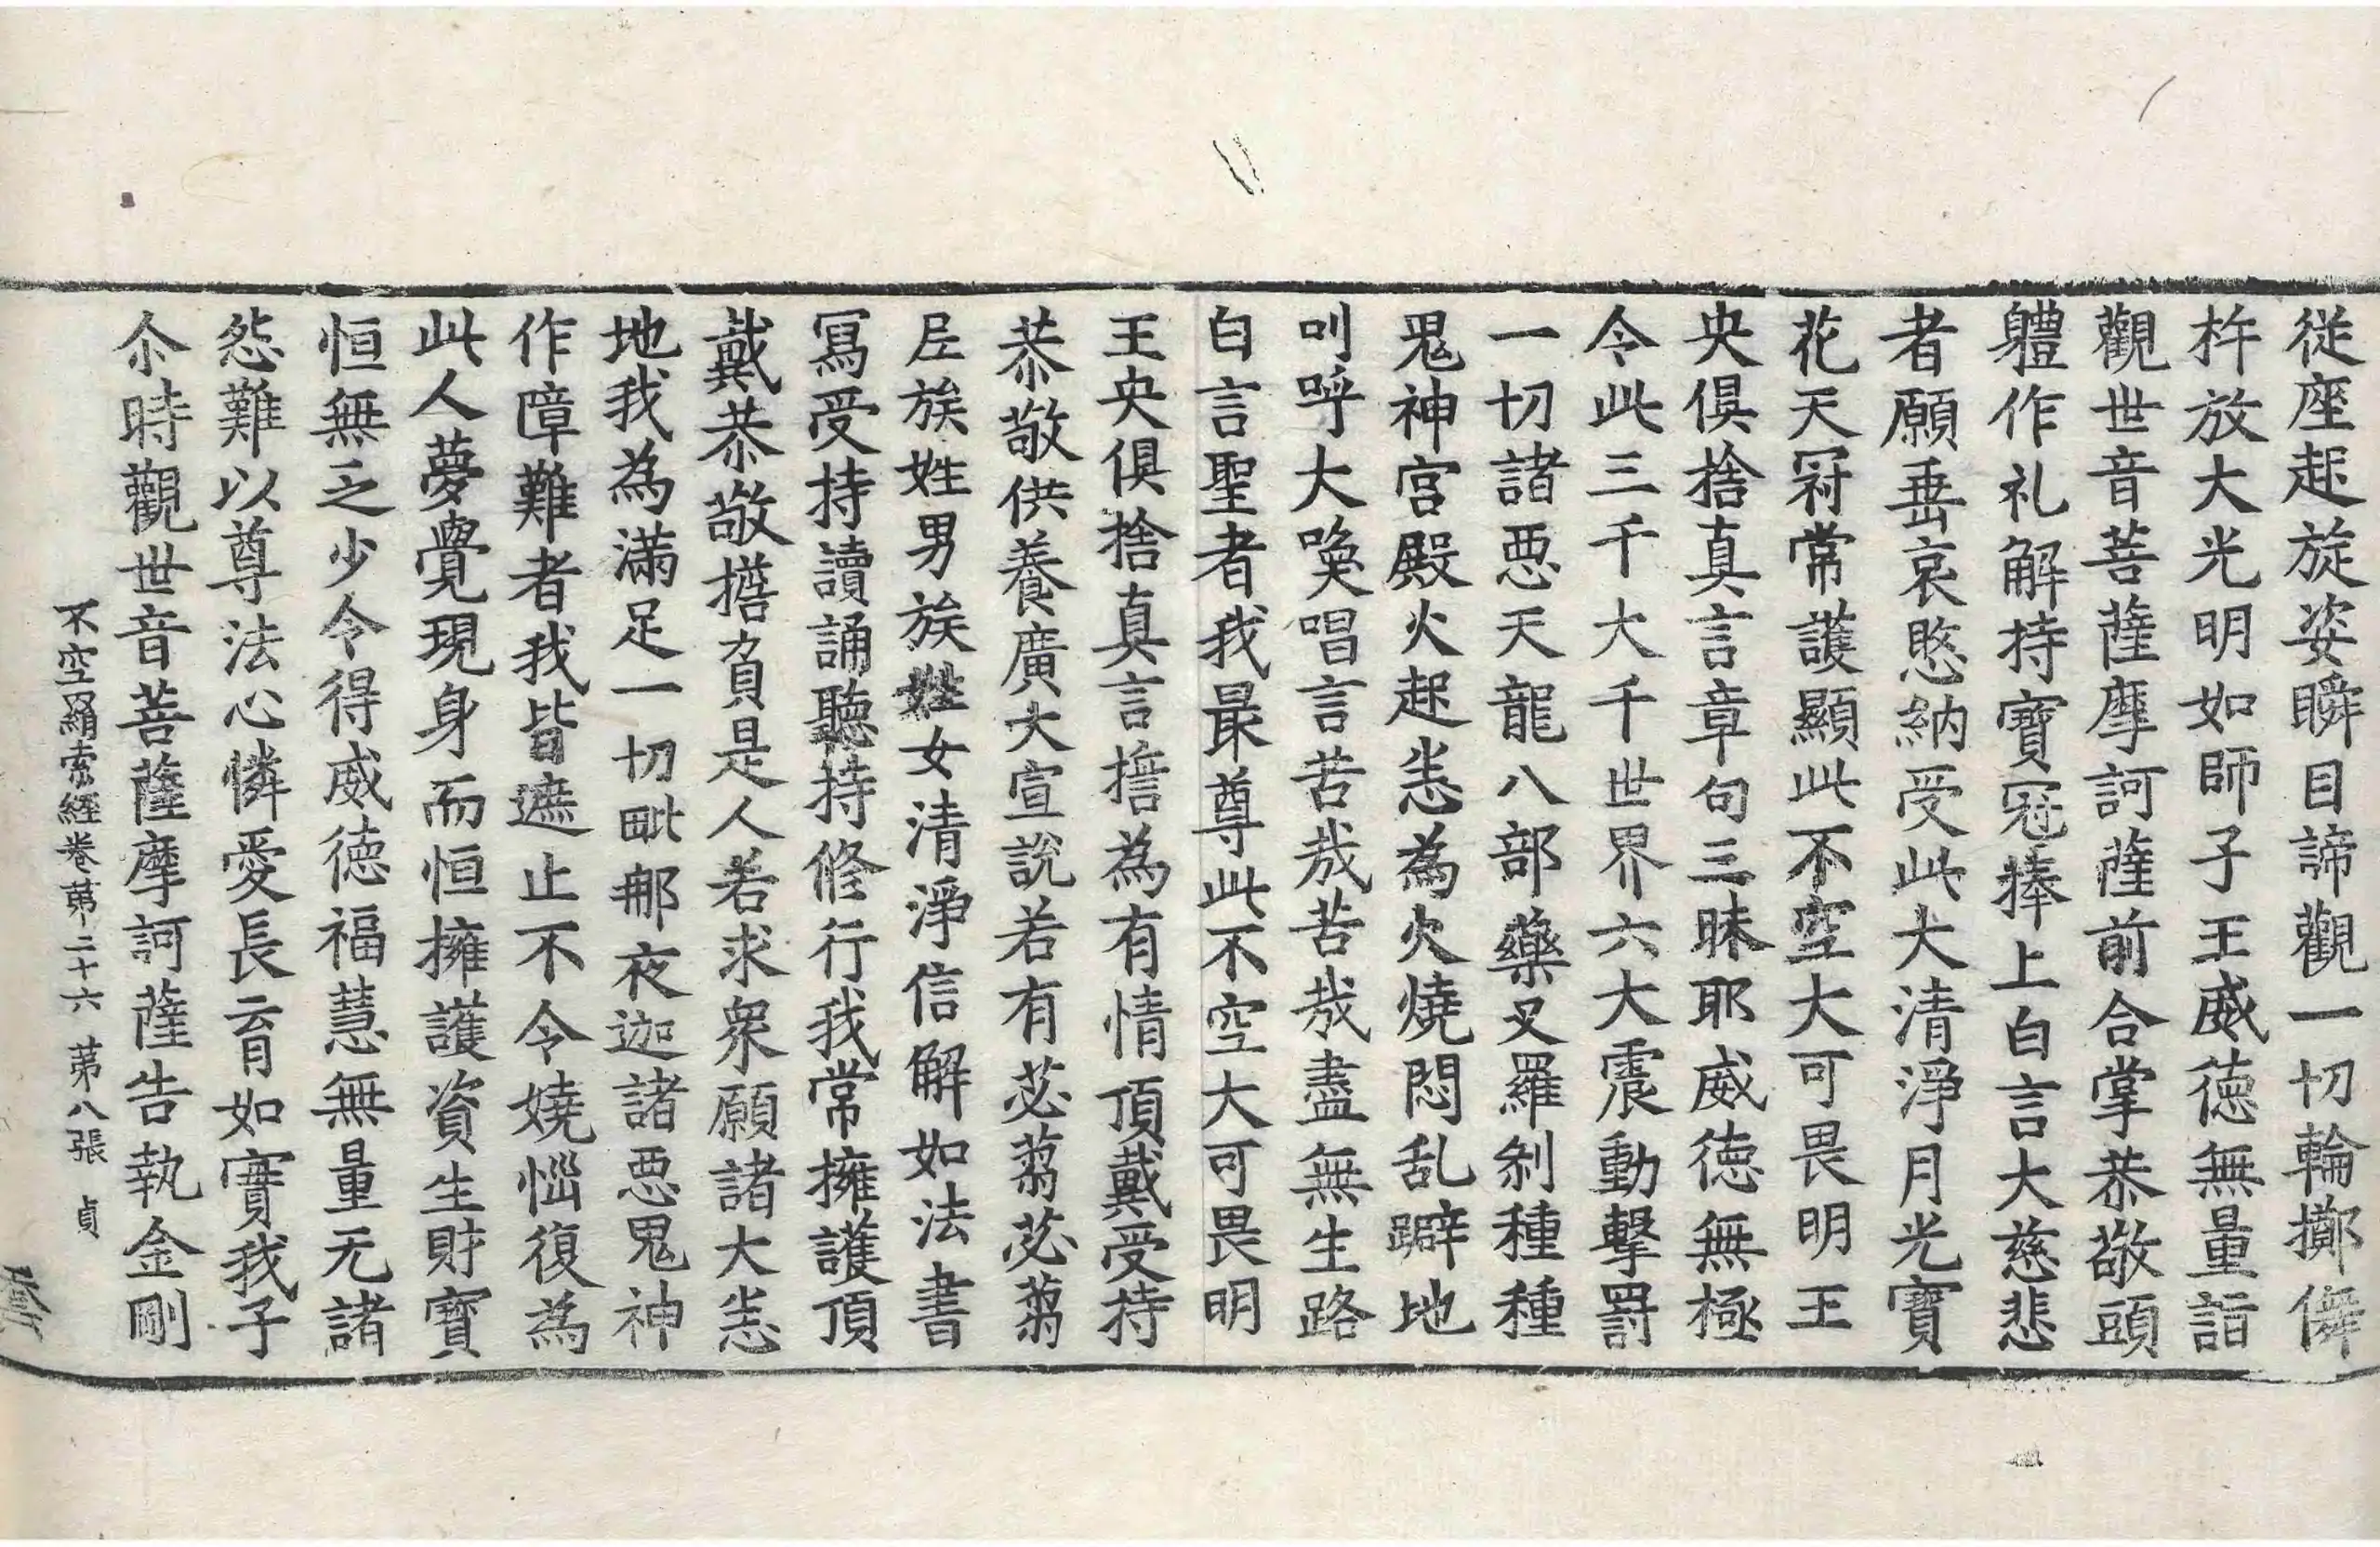 従座起旋姿瞬目諦觀一切輪擲儛
杵放大光明如師子王威德無量詣
觀世音菩薩摩訶薩前合掌恭敬頭
軆作礼解持寶冠捧上白言大慈悲
者願垂哀愍納受此大清淨月光寶
花天冠常護顯此不空大可畏明王
央俱捨真言章句三昧耶威德無極
令此三千大千世界六大震動擊罸
一切諸惡天龍八部藥叉羅剎種種
鬼神宮殿火起恙為火燒悶乱躃地
叫呼大喚唱言苦哉苦哉盡無生路
白言聖者我最尊此不空大可畏明
王央俱捨真言擔為有情頂戴受持
恭敬供養廣大宣說若有苾蒭苾蒭
尼族姓男族姓女清淨信解如法書
寫受持讀誦聽持修行我常擁護頂
戴恭敬擔負是人若求衆願諸大恙
地我為滿足一切毗那夜迦諸惡鬼神
作障難者我皆遮止不令嬈惱復為
此人夢覺現身而恒擁護資生財寶
恒無乏少令得威德福慧無量无諸
怨難以尊法心憐愛長育如實我子
尒時觀世音菩薩摩訶薩告執金剛
不空羂索經卷第二十六 第八張 貞